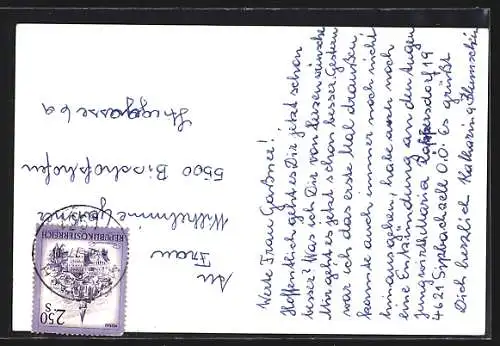 Werte Frau Gaßner!
Hoffentlich geht es Dir jetzt schon
besser? Was ich Dir von Herzen wünsche
Uns geht es jetzt schon besser. Gestern
war ich das erste Mal draußen,
konnte auch immer noch nicht
hinausgehen, habe auch noch
eine Entzündung an den Augen
4621 Sipbachzell O.Ö. Es grüßt
Dich herzlich Katharina
An
Frau
Wilhelmine Gaßner
5500 Bischofshofen
REPUBLIK ÖSTERREICH
2.50
S